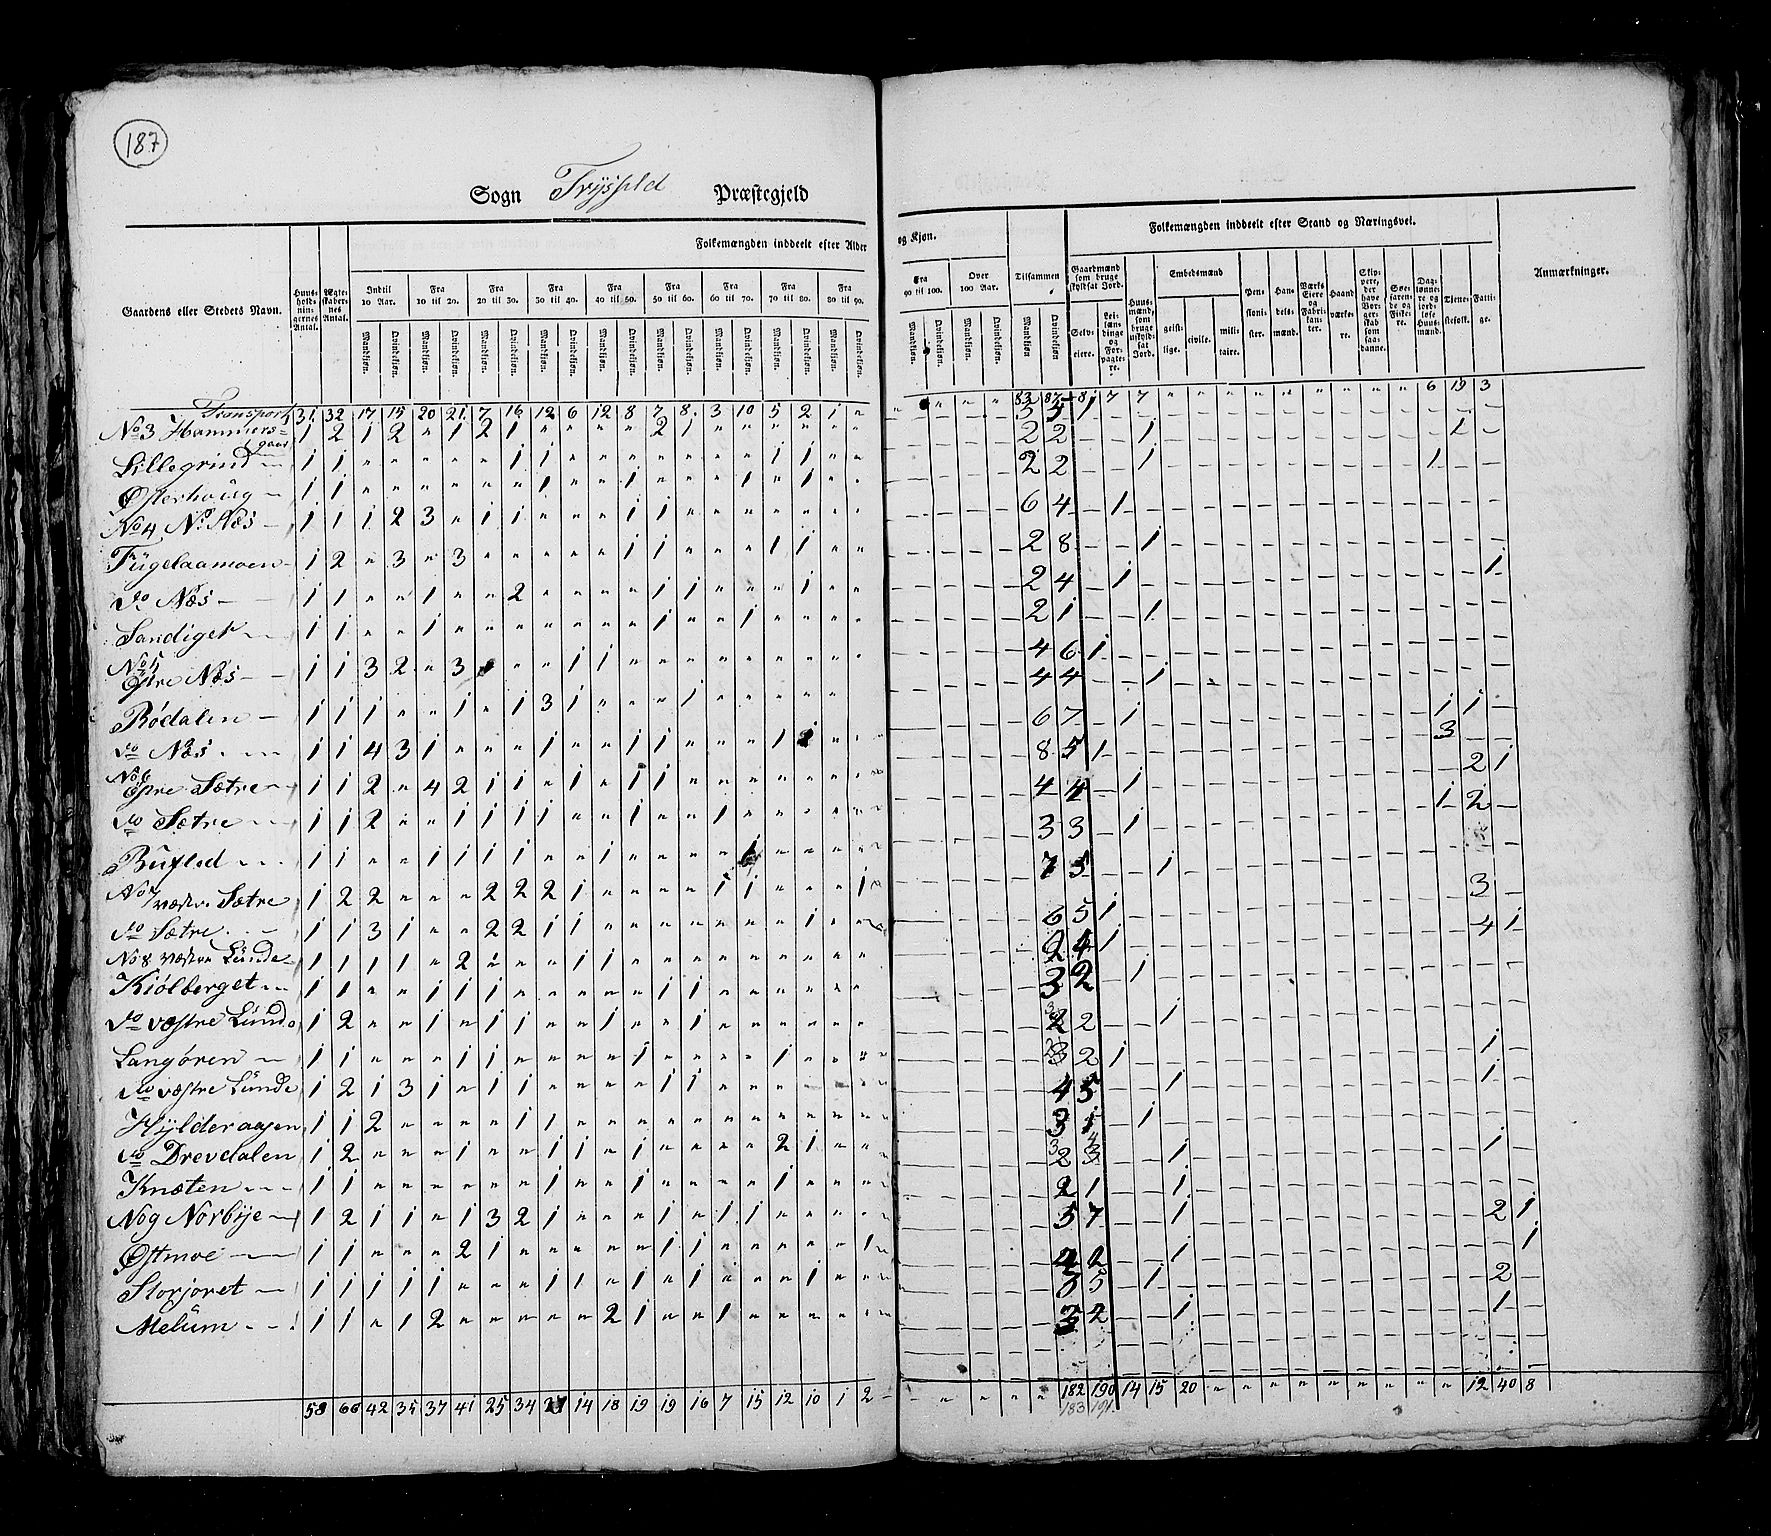 187
Sogn Trysild Præstegjeld
Gaardens eller Stedets Navn. Huus-holdningernes Antal. Ægteskabernes Antal. Folkemængden inddeelt efter Alder og Kjøn. Tilsammen Folkemængden inddeelt efter Stand og Næringsvei. Anmærkninger.
Indtil 10 Aar. Fra 10 til 20. Fra 20 til 30. Fra 30 til 40. Fra 40 til 50. Fra 50 til 60. Fra 60 til 70. Fra 70 til 80. Fra 80 til 90. Fra 90 til 100. Over 100 Aar.
Mandkjøn. Qvindekjøn.
Gaardmænd som bruge skyldsat Jord. Selveiere. Leilændinge og Forpagtere. Huusmænd, som bruge uskyldsat Jord. Embedsmænd geistlige. civile. militaire. Pensionister. Handelsmænd. Værks Eiere og Fabrikanter. Haandværkere. Skippere, der have Borgerskab som saadanne. Søefarende og Fiskere. Daglønnere og jordløse Huusmænd. Tjenestefolk. Fattige.
Transport 31 32 17 15 20 21 7 16 12 6 12 8 7 8 3 10 5 2 1 " " " " " 83 87 8 7 7 " " " " " " " " " 6 19 3
No 3 Hammersgaar 1 2 1 2 " 1 2 1 " " " " 2 1 " " " " " " 5 5 1
Lillegrind 1 1 " " " " " 1 1 " " " " " " " 1 1 " " 2 2 1 1
Østerhoug 1 1 " " " " " " 1 " " 1 " " " 1 " 1 " " 2 2 1 1
No 4 N. Næs 1 1 1 2 3 " 1 1 " " " 1 1 " " " " " " " 6 4 1
Fugelaamoen 1 2 " 3 " 3 " " " " " 1 1 " " " 1 1 " " 2 8 1
do Næs 1 1 " " 1 " " 2 " " " " 1 1 " " " 1 " " 2 4 1 1
Sandiget 1 1 " " 1 " " " " " " " 1 " " 1 " " " " 2 1 1
No 5 Østre Næs 1 1 3 2 " 3 " " " 1 1 " " " " " " " " " 4 6 1
Rödalen 1 1 1 " " 1 " 1 3 1 " " " 1 " " " " " " 4 4 1
do Næs 1 1 4 3 1 " " " 1 " " 1 1 " " " 1 1 " " 6 7 1 1 1
No 6 Østre Sætre 1 1 2 " 4 2 1 1 " 1 " 1 1 " " " " " " " 8 5 1 3
do Sætre 1 1 2 " " 1 1 1 1 " " 1 " " 1 " " " " " 4 4 1 2 1
Buflod 1 1 " " 1 1 1 1 " " 1 " " " " 1 " " " " 3 3 1 1 2
No 7 Væstre Sætre 1 2 2 " " " 2 2 2 1 " " " " 1 1 " " " 1 7 5 1
do Sætre 1 1 3 1 " " 2 2 1 1 " " " " " " " 1 " " 6 5 1 3
No 8 Væstre Lunde 1 1 1 1 " 2 1 " " 1 1 " " " " " " " " " 2 4 1 4 1
Kiölberget 1 1 " " 1 1 1 " " " " " 1 1 " " " " " " 3 2 1
do Væstre Lunde 1 2 " " 1 " 1 1 " " 1 " " 1 " " " " " " 2 2 1
Langören 1 1 " " " 1 1 " " " " 1 " " " " 1 " " " 3 2 1 1
do Væstre Lunde 1 2 1 3 1 " 1 1 " " " " 1 1 " " " " " " 4 5 1 1
Hylderaasen 1 1 2 " " " " 1 1 " " " " " " " " " " " 3 1 1
do Drevdalen 1 2 " " " 1 " " 1 1 " 1 " " " " 2 1 " " 2 3 1 1
Knæten 1 1 " " " " " " 1 " " 1 " " " " 1 " " " 2 1 1
No 9 Norbye 1 2 1 1 " 1 3 2 1 " " " 1 " 1 1 " " " " 5 7 1 2 1
Østmoe 1 1 " " " 2 1 " " " " " 1 1 " " " " " 1 2 2 1 1
Storjoret 1 1 1 1 1 " " " 1 1 " 1 " 1 " " " 1 " " 3 5 1 2
Melum 1 1 " 1 2 " " " " " 2 1 " " 1 " " " " " 3 2 1 1
58 66 42 35 37 41 25 34 14 18 19 19 16 7 15 12 10 1 2 " " " " 182 190 14 15 20 " " " " " " " " " 12 40 8
183 191